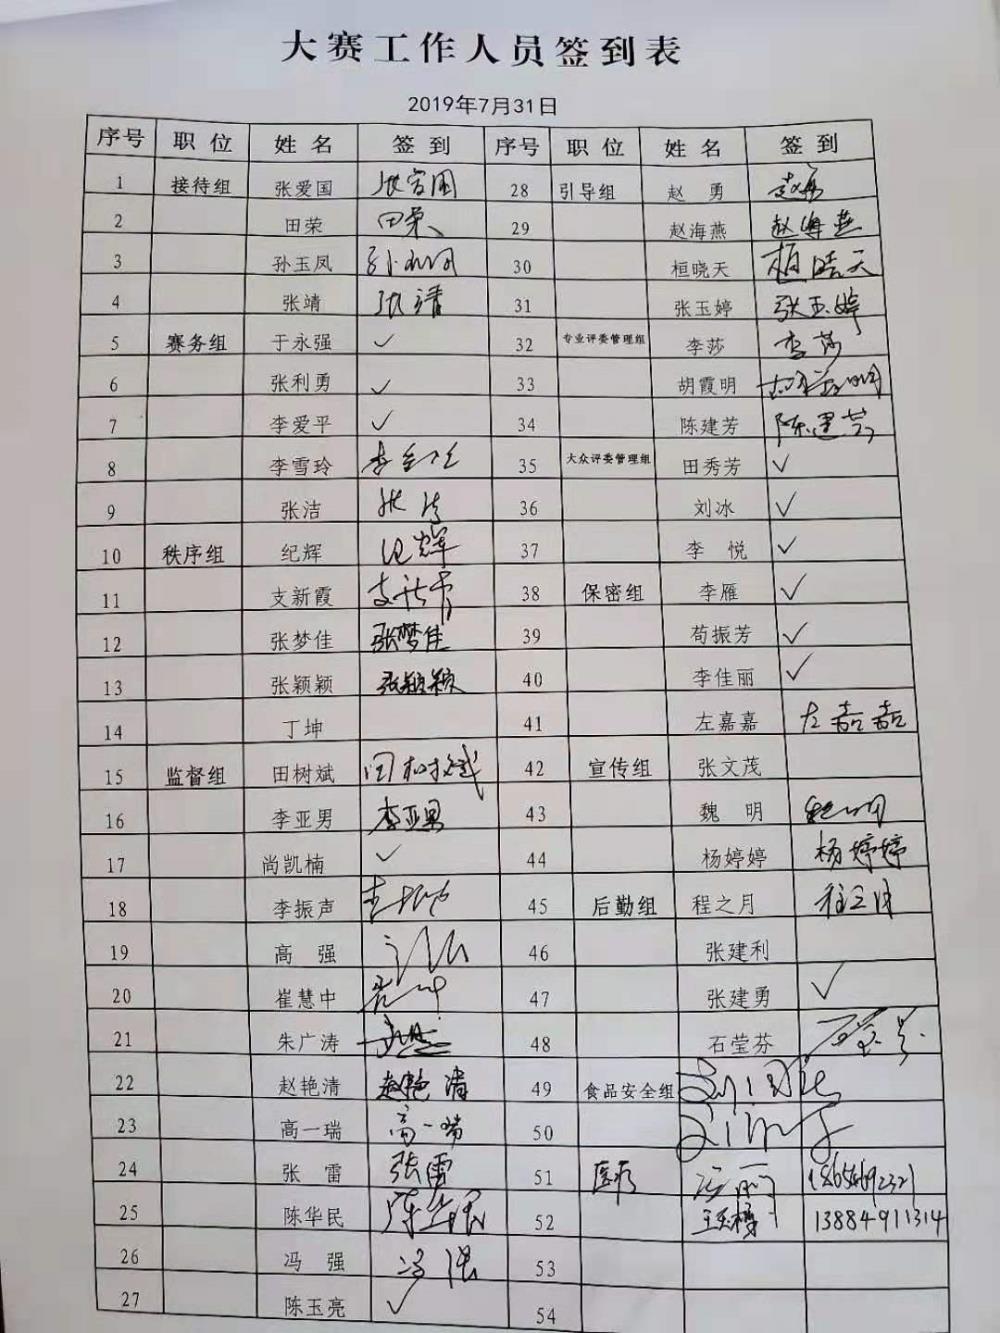 大赛工作人员签到表
2019年7月31日
序号 职位 姓名 签到 序号 职位 姓名 签到
1 接待组 张爱国 张爱国 28 引导组 赵勇 赵勇
2 田荣 田荣 29 赵海燕 赵海燕
3 孙玉凤 30 桓晓天 桓晓天
4 张靖 张靖 31 张玉婷 张玉婷
5 赛务组 于永强 ✓ 32 专业评委管理组 李莎 李莎
6 张利勇 ✓ 33 胡霞明 胡霞明
7 李爱平 ✓ 34 陈建芳 陈建芳
8 李雪玲 李雪玲 35 大众评委管理组 田秀芳 ✓
9 张洁 张洁 36 刘冰 ✓
10 秩序组 纪辉 纪辉 37 李悦 ✓
11 支新霞 支新霞 38 保密组 李雁 ✓
12 张梦佳 张梦佳 39 荀振芳 ✓
13 张颖颖 张颖颖 40 李佳丽 ✓
14 丁坤 41 左嘉嘉 左嘉嘉
15 监督组 田树斌 田树斌 42 宣传组 张文茂
16 李亚男 李亚男 43 魏明
17 尚凯楠 ✓ 44 杨婷婷 杨婷婷
18 李振声 45 后勤组 程之月 程之月
19 高强 46 张建利
20 崔慧中 47 张建勇 ✓
21 朱广涛 48 石莹芬 石莹芬
22 赵艳清 赵艳清 49 食品安全组
23 高一瑞 高一瑞 50
24 张雷 张雷 51 医疗 18654692321
25 陈华民 陈华民 52 13884911314
26 冯强 冯强 53
27 陈玉亮 ✓ 54